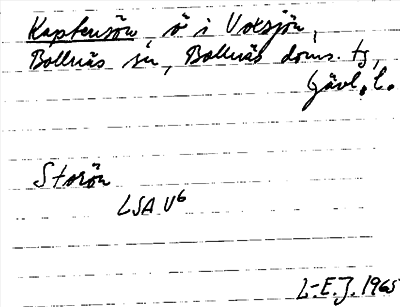 Kaptensön, ö i Voxsjön,
Bollnäs sn, Bollnäs doms. tg,
Gävl. l.
Storön
LSA V6
L-E.J. 1965